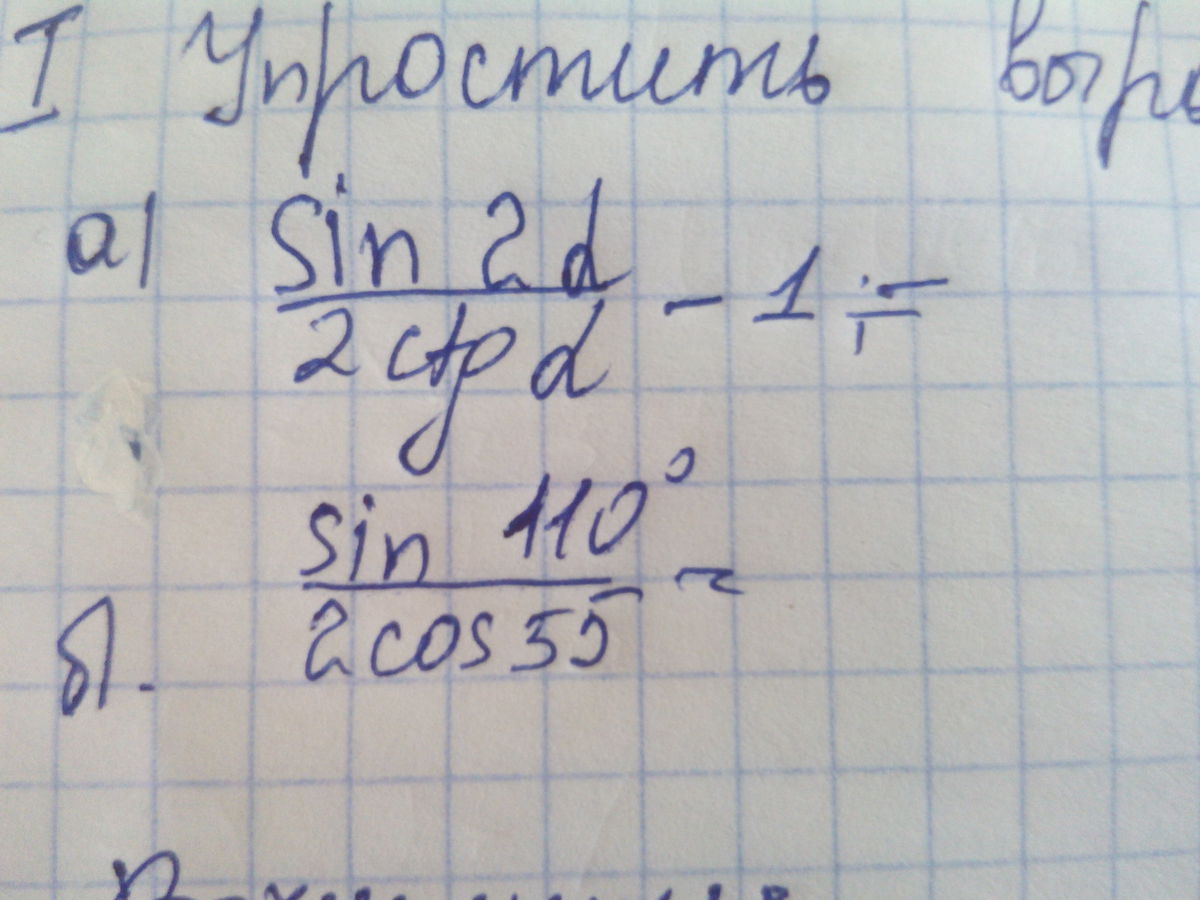 I Упростить выра
а) sin 2α / 2 ctg α - 1 =
б. sin 110° / 2 cos 55 =